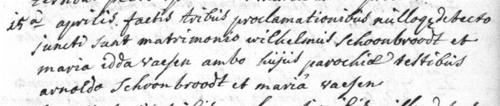 15a aprilis factis tribus proclamationibus nulloq; detecto
juncti sunt matrimonio wilhelmus Schoonbroodt et
maria idda vaesen ambo hujus parochiæ testibus
arnoldo Schoonbroodt et mariâ vaesen